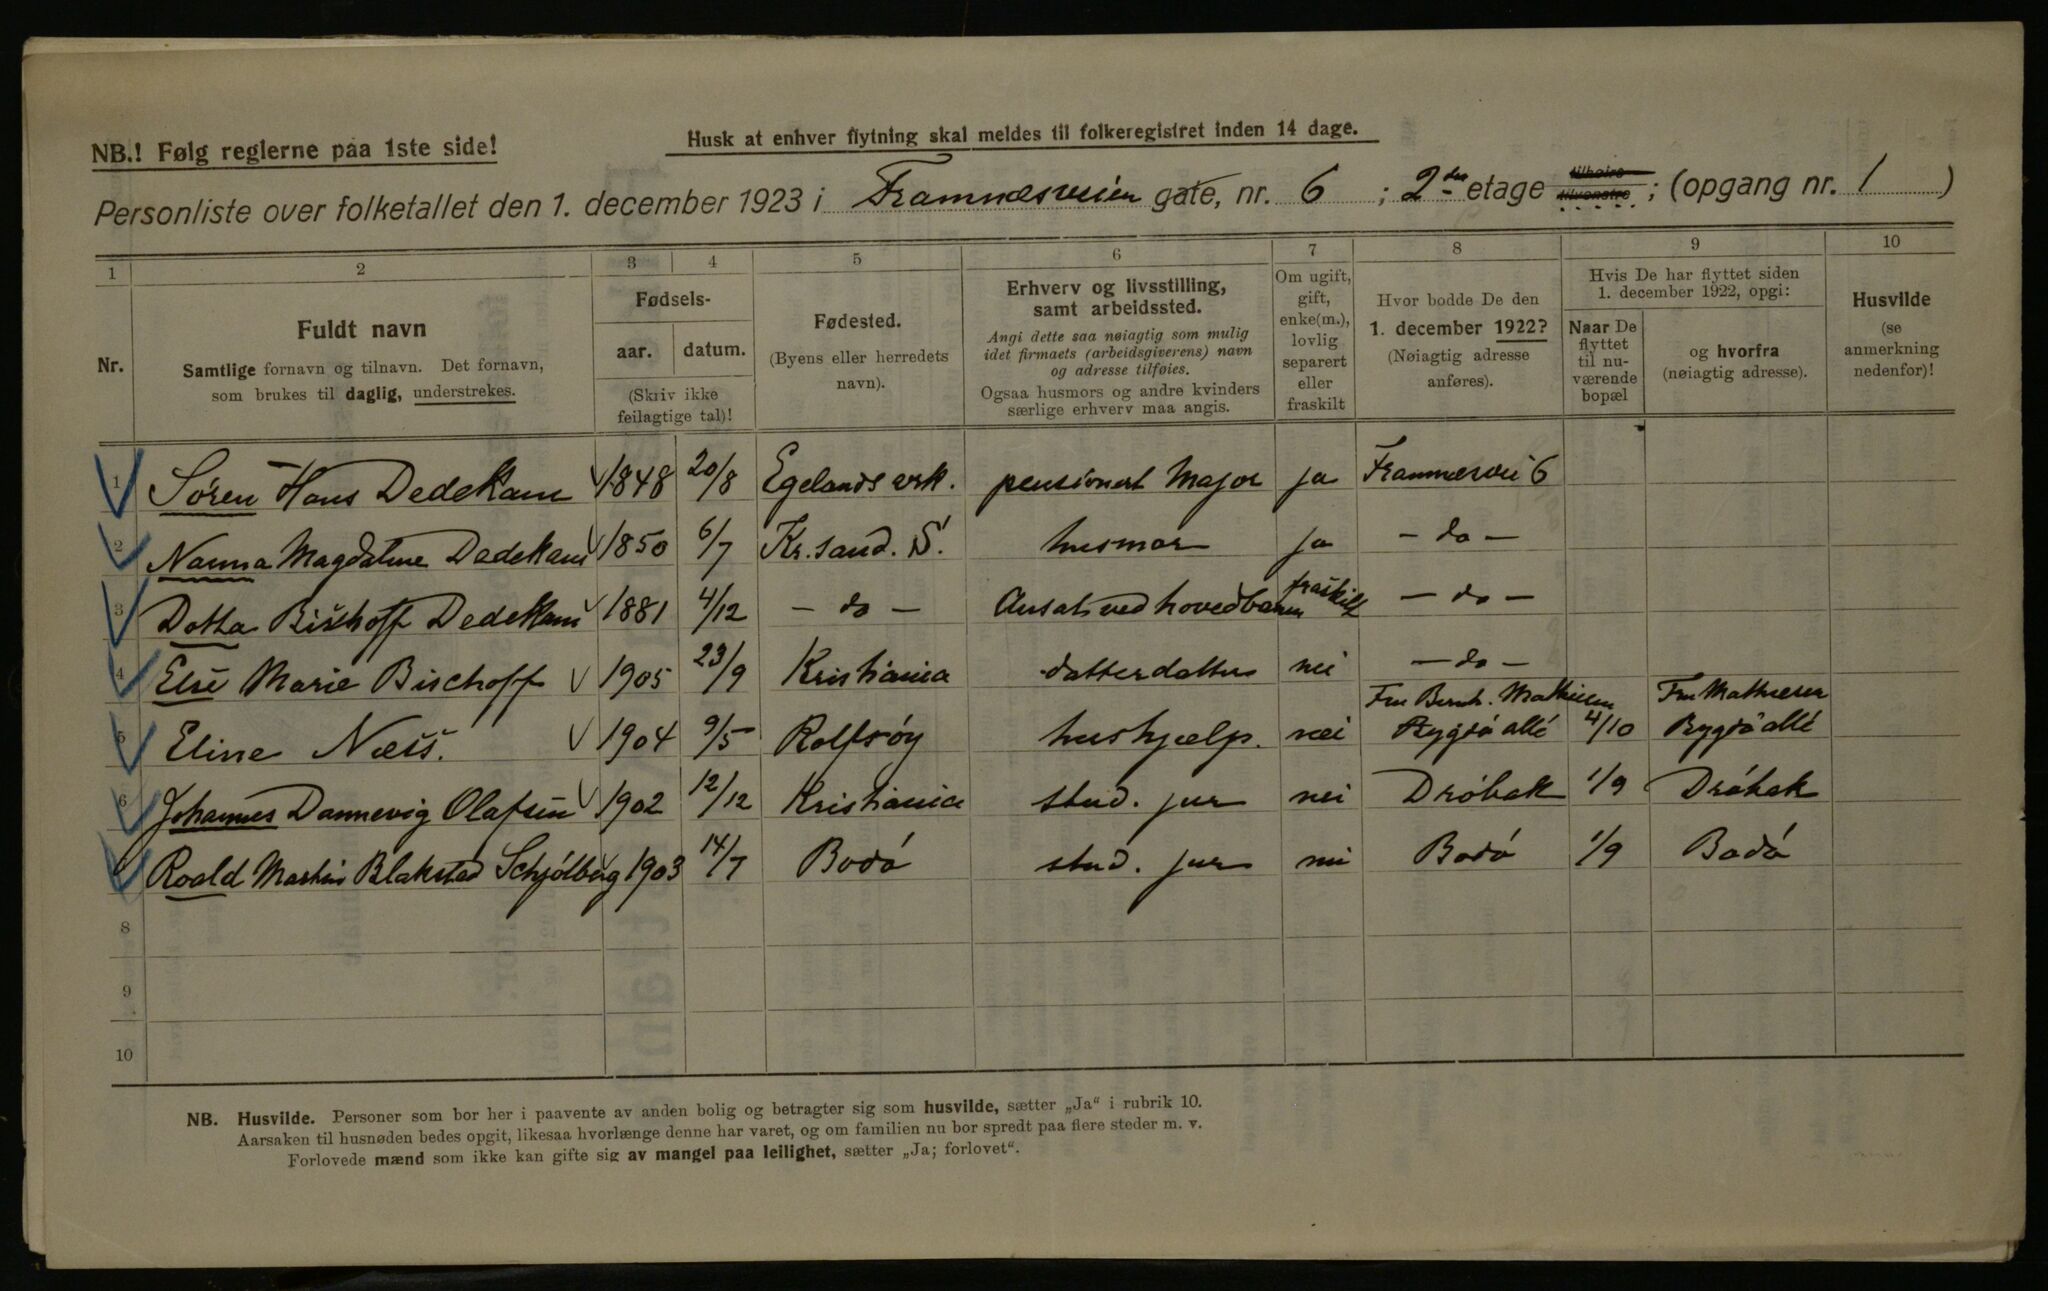 Husk at enhver flytning skal meldes til folkeregistret inden 14 dage.
NB.! Følg reglerne paa 1ste side!
Personliste over folketallet den 1. december 1923 i Framnæsveien gate, nr. 6 ; 2den etage tilhøire tilvenstre ; (opgang nr. 1 )
1 2 3 4 5 6 7 8 9 10
Nr.
Fuldt navn
Samtlige fornavn og tilnavn. Det fornavn,
som brukes til daglig, understrekes.
Fødsels-
aar. datum.
(Skriv ikke
feilagtige tal)!
Fødested.
(Byens eller herredets
navn).
Erhverv og livsstilling,
samt arbeidssted.
Angi dette saa nøiagtig som mulig
idet firmaets (arbeidsgiverens) navn
og adresse tilføies.
Ogsaa husmors og andre kvinders
særlige erhverv maa angis.
Om ugift,
gift,
enke(m.),
lovlig
separert
eller
fraskilt
Hvor bodde De den
1. december 1922?
(Nøiagtig adresse
anføres).
Hvis De har flyttet siden
1. december 1922, opgi:
Naar De
flyttet
til nu-
værende
bopæl
og hvorfra
(nøiagtig adresse).
Husvilde
(se
anmerkning
nedenfor)!
1 Søren Hans Dedekam 1848 20/8 Egelands verk. pensionert Major ja Framnæsvei 6
2 Nanna Magdalene Dedekam 1850 6/7 Kr.sand. S. husmor ja - do -
3 Dotta Bischoff Dedekam 1881 4/12 - do - Ansat ved hovedbanen fraskilt - do -
4 Else Marie Bischoff 1905 23/9 Kristiania datterdatter nei - do -
5 Eline Næss. 1904 9/5 Rolfsøy hushjælp. nei Fru Bernh. Mathiesen Bygdø allé 4/10 Fru Mathiesen Bygdø allé
6 Johannes Dannevig Olafsen 1902 12/12 Kristiania stud. jur nei Drøbak 1/9 Drøbak
Roald Martin Blakstad Schjølberg 1903 14/7 Bodø stud. jur nei Bodø 1/9 Bodø
8
9
10
NB. Husvilde. Personer som bor her i paavente av anden bolig og betragter sig som husvilde, sætter „Ja“ i rubrik 10.
Aarsaken til husnøden bedes opgit, likesaa hvorlænge denne har varet, og om familien nu bor spredt paa flere steder m. v.
Forlovede mænd som ikke kan gifte sig av mangel paa leilighet, sætter „Ja; forlovet“.